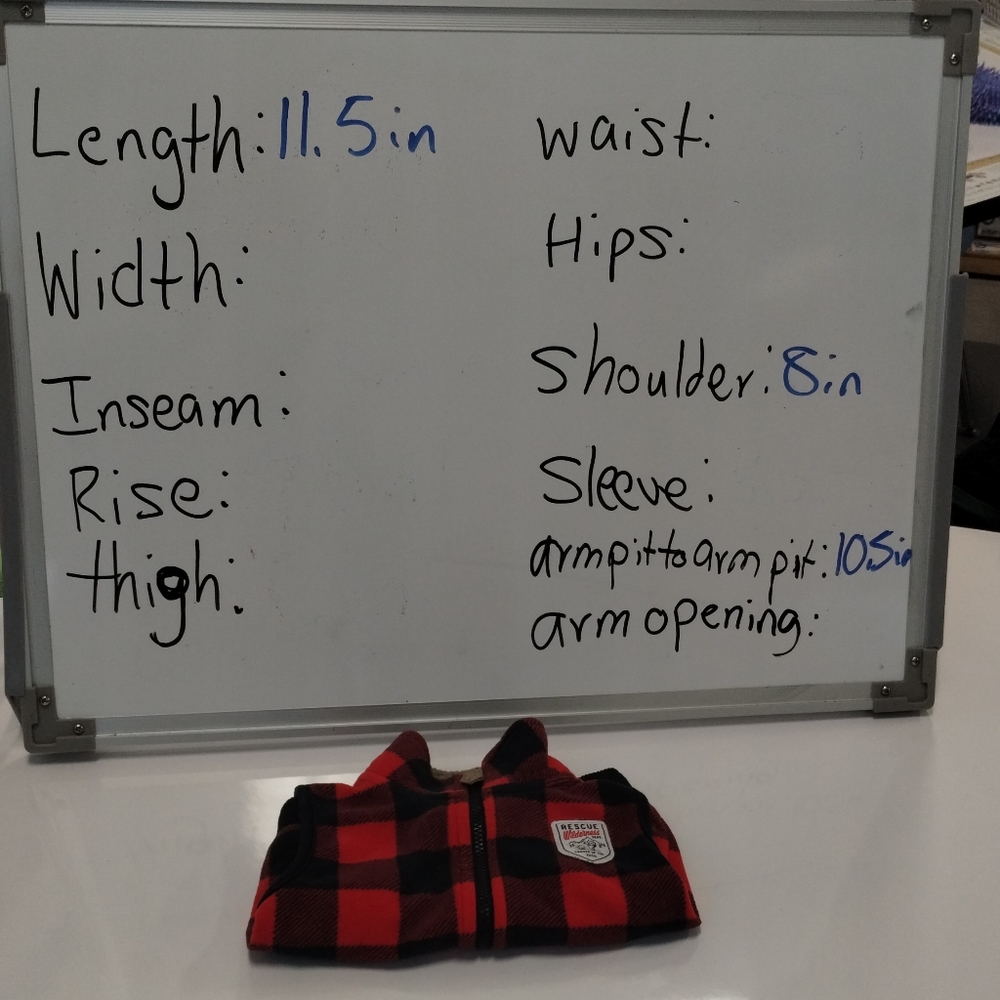 Length: 11.5in
Width:
Inseam:
Rise:
thigh:
waist:
Hips:
Shoulder: 8in
Sleeve:
armpit to arm pit: 10.5in
arm opening:
RESCUE
Wilderness